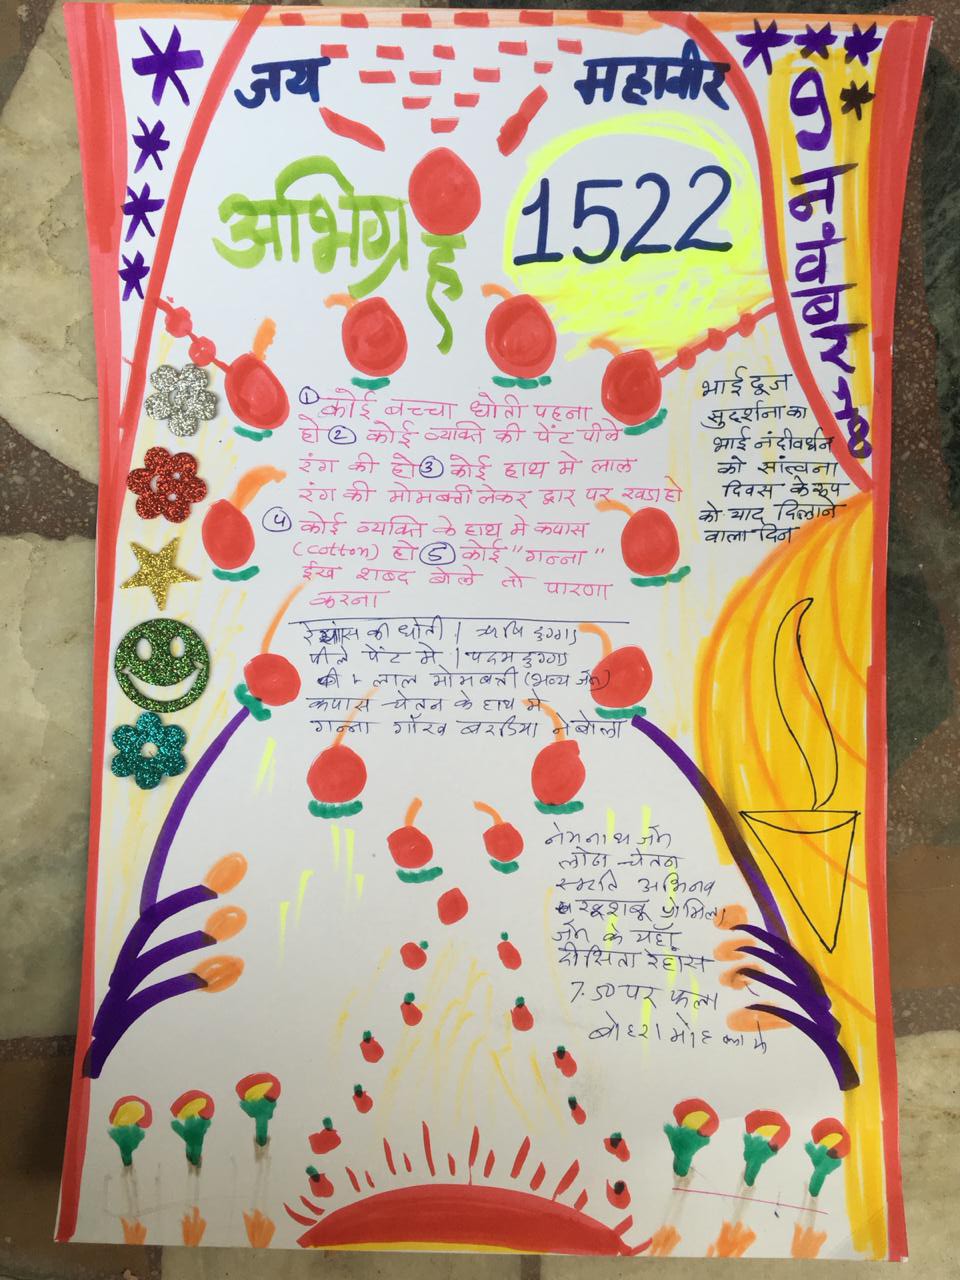 जय महावीर
अभिग्रह 1522
9 नवंबर-18
① कोई बच्चा धोती पहना
हो ② कोई व्यक्ति की पेंट पीले
रंग की हो ③ कोई हाथ मे लाल
रंग की मोमबती लेकर द्वार पर खडा हो
④ कोई व्यक्ति के हाथ मे कपास
(cotton) हो ⑤ कोई "गन्ना"
ईख शब्द बोले तो पारणा
करना
भाई दूज
सुदर्शना का
भाई नंदीवर्धन
को सांत्वना
दिवस के रूप
को याद दिलाने
वाला दिन
की धोती | ऋषि दुग्गड
पीले पेंट मे | पदम दुग्गड
लाल मोमबती (भव्य जैन)
कपास चेतन के हाथ मे
गन्ना गौरव बरडिया ने बोला
नेमनाथ जैन
लोढा चेतन
अभिनव
खुशबू प्रोमिला
जैन के यहाँ
7.50 पर फला
बोहरा मोहल्ला मे